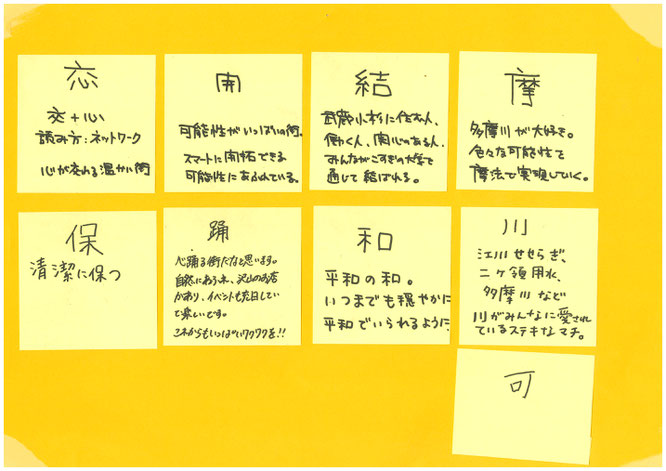 交+心
読み方:ネットワーク
心が交わる温かい街
開
可能性がいっぱいの街。
スマートに開拓できる
可能性にあふれている。
結
武蔵小杉に住む人、
働く人、関心のある人、
みんながこすぎの大学を
通して結ばれる。
摩
多摩川が大好き。
色々な可能性を
摩法で実現していく。
保
清潔に保つ
踊
心踊る街だなと思います。
自然にあふれ、沢山のお店
があり、イベントも充日してい
て楽しいです。
これからもいっぱいワクワクを!!
和
平和の和。
いつまでも穏やかに
平和でいられるように。
川
江川せせらぎ、
二ケ領用水、
多摩川など
川がみんなに愛され
ているステキなマチ。
可